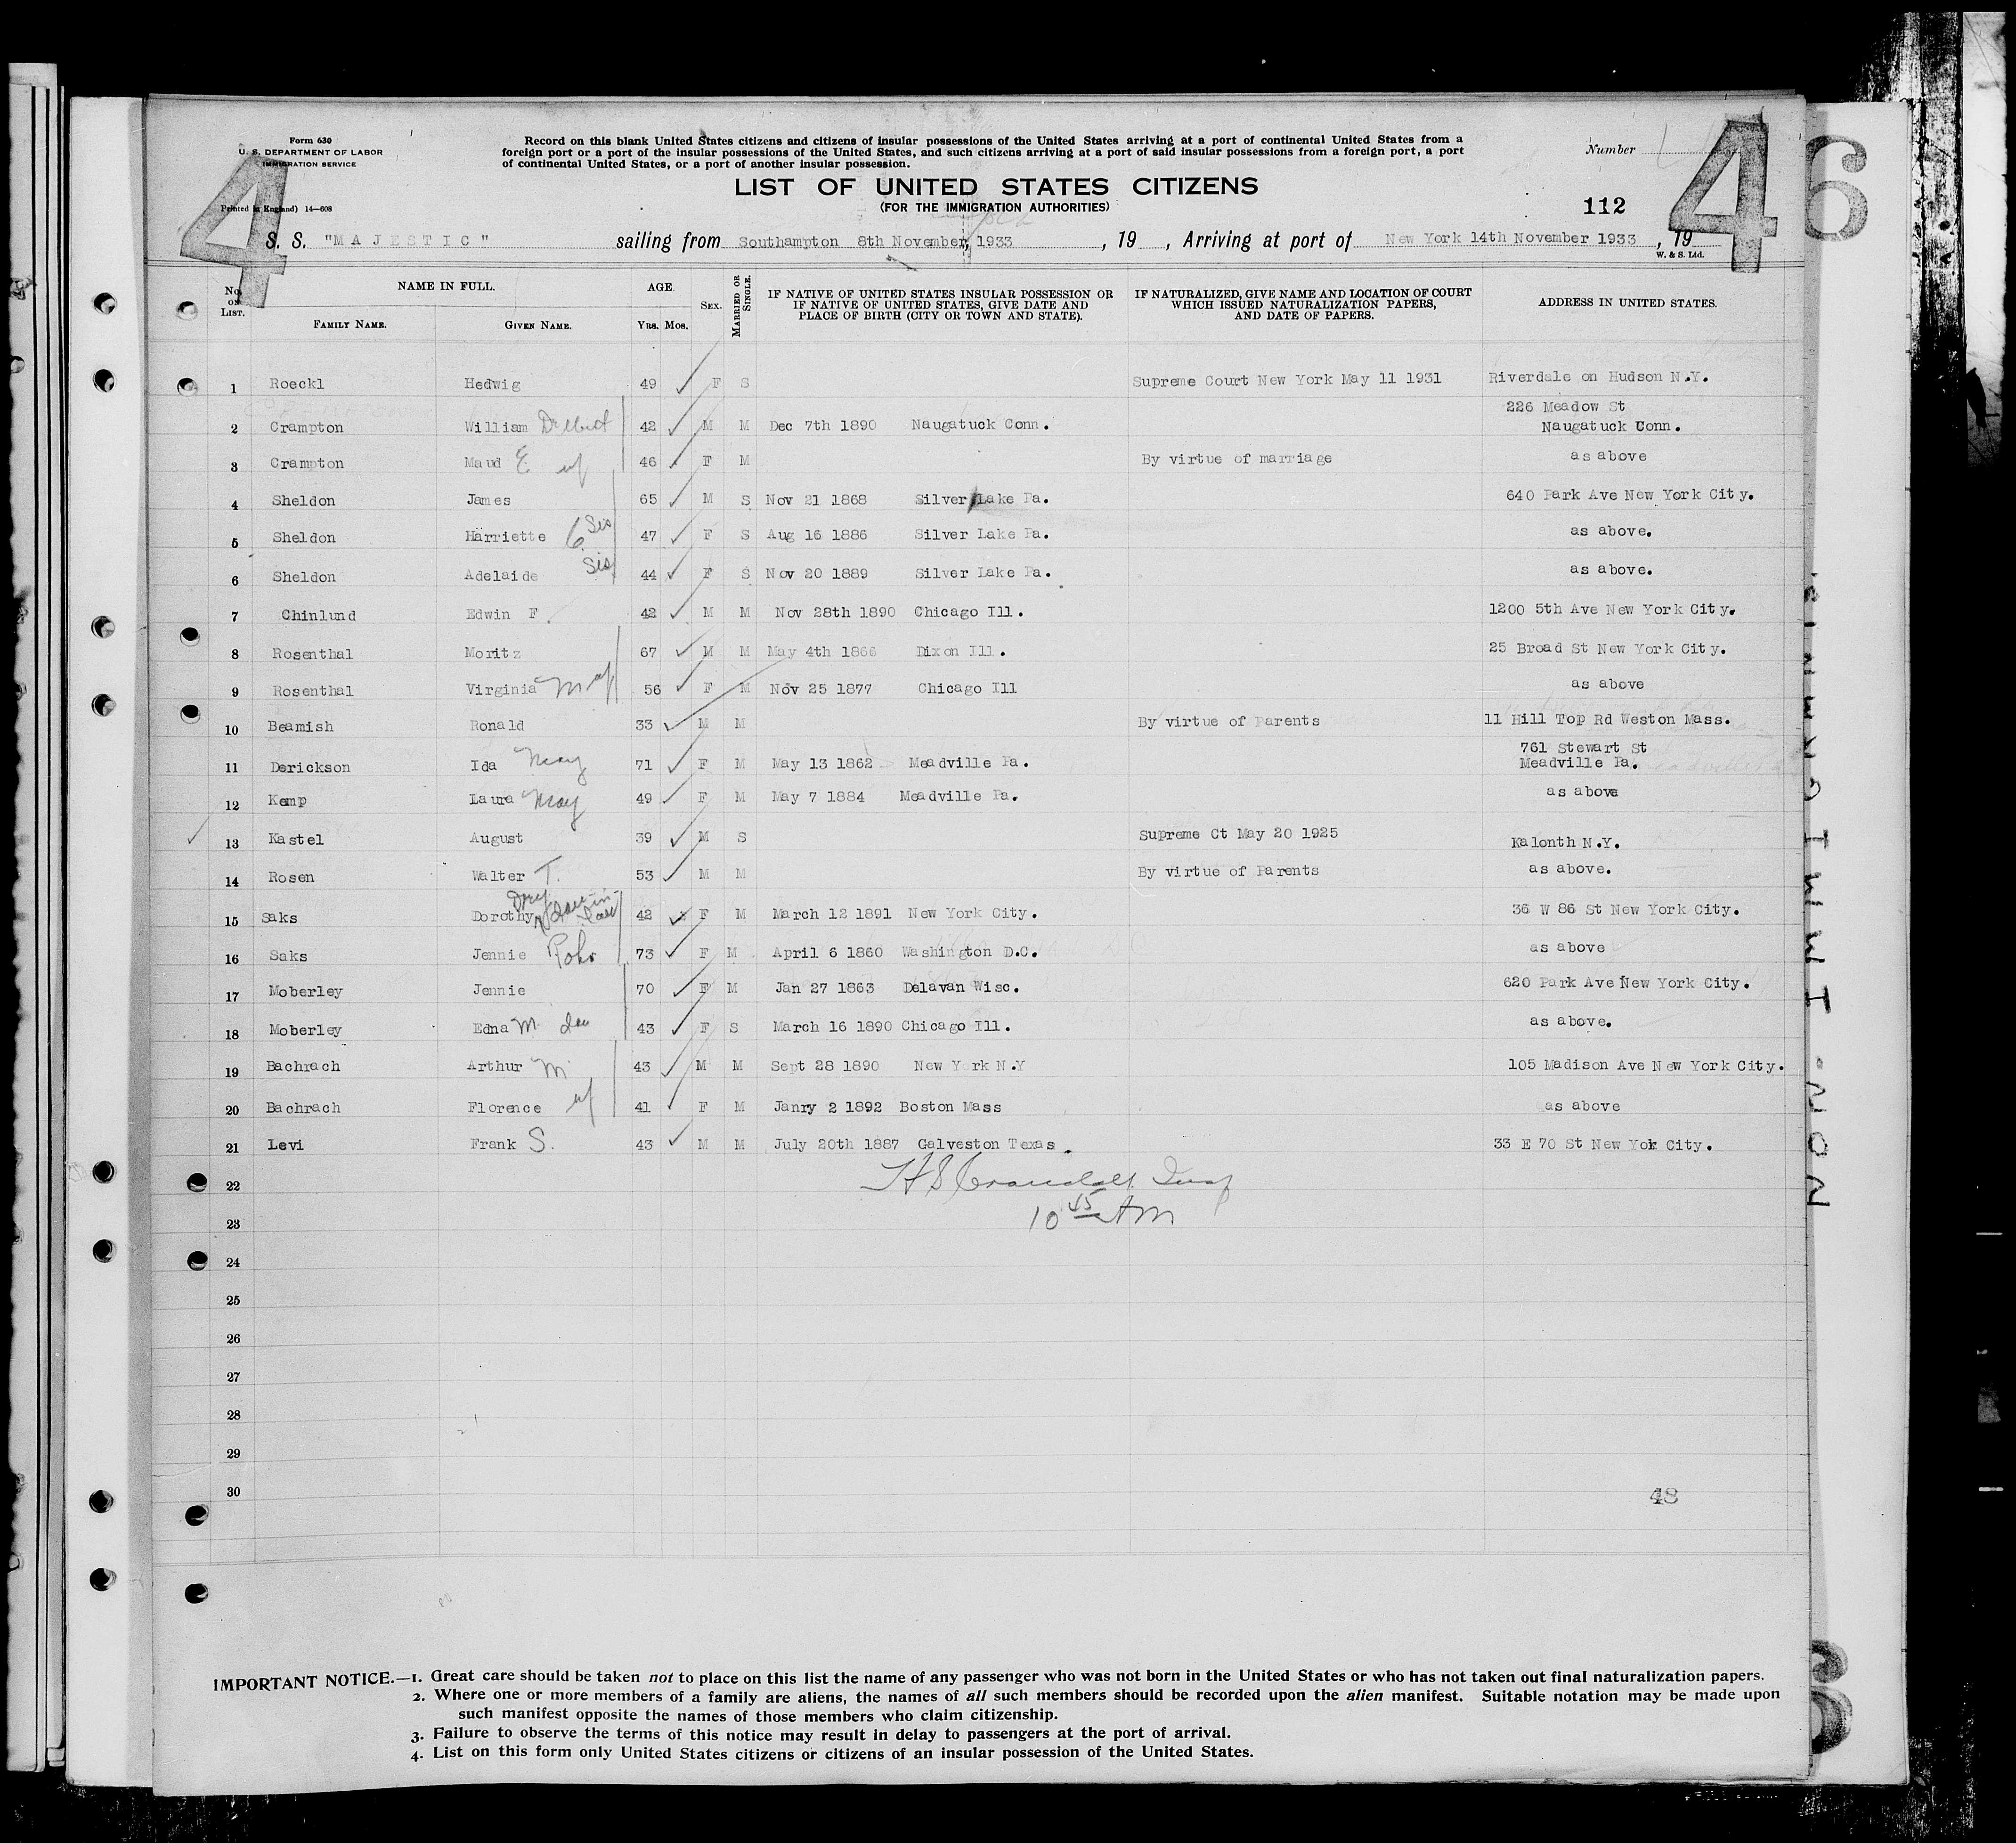 Form 630
U. S. DEPARTMENT OF LABOR
IMMIGRATION SERVICE
Printed in England) 14—608
4
Record on this blank United States citizens and citizens of insular possessions of the United States arriving at a port of continental United States from a
foreign port or a port of the insular possessions of the United States, and such citizens arriving at a port of said insular possessions from a foreign port, a port
of continental United States, or a port of another insular possession.
Number
4
6
LIST OF UNITED STATES CITIZENS
(FOR THE IMMIGRATION AUTHORITIES)
112
S. S. "MAJESTIC" sailing from Southampton 8th November, 1933, 19 , Arriving at port of New York 14th November 1933, 19
W. & S. Ltd.
No. ON LIST. NAME IN FULL. FAMILY NAME. GIVEN NAME. AGE. YRS. MOS. SEX. MARRIED OR SINGLE. IF NATIVE OF UNITED STATES INSULAR POSSESSION OR IF NATIVE OF UNITED STATES, GIVE DATE AND PLACE OF BIRTH (CITY OR TOWN AND STATE). IF NATURALIZED, GIVE NAME AND LOCATION OF COURT WHICH ISSUED NATURALIZATION PAPERS, AND DATE OF PAPERS. ADDRESS IN UNITED STATES.
1 Roeckl Hedwig 49 F S Supreme Court New York May 11 1931 Riverdale on Hudson N.Y.
2 Crampton William 42 M M Dec 7th 1890 Naugatuck Conn. 226 Meadow St Naugatuck Conn.
3 Crampton Maud E wf 46 F M By virtue of marriage as above
4 Sheldon James 65 M S Nov 21 1868 Silver Lake Pa. 640 Park Ave New York City.
5 Sheldon Harriette Sis 47 F S Aug 16 1886 Silver Lake Pa. as above.
6 Sheldon Adelaide Sis 44 F S Nov 20 1889 Silver Lake Pa. as above.
7 Chinlund Edwin F. 42 M M Nov 28th 1890 Chicago Ill. 1200 5th Ave New York City.
8 Rosenthal Moritz 67 M M May 4th 1866 Dixon Ill. 25 Broad St New York City.
9 Rosenthal Virginia M wf 56 F M Nov 25 1877 Chicago Ill as above
10 Beamish Ronald 33 M M By virtue of Parents 11 Hill Top Rd Weston Mass.
11 Derickson Ida May 71 F M May 13 1862 Meadville Pa. 761 Stewart St Meadville Pa.
12 Kemp Laura May 49 F M May 7 1884 Meadville Pa. as above
13 Kastel August 39 M S Supreme Ct May 20 1925 Kalonth N.Y.
14 Rosen Walter T. 53 M M By virtue of Parents as above.
15 Saks Dorothy 42 F M March 12 1891 New York City. 36 W 86 St New York City.
16 Saks Jennie 73 F M April 6 1860 Washington D.C. as above
17 Moberley Jennie 70 F M Jan 27 1863 Delavan Wisc. 620 Park Ave New York City.
18 Moberley Edna M. dau 43 F S March 16 1890 Chicago Ill. as above.
19 Bachrach Arthur M 43 M M Sept 28 1890 New York N.Y 105 Madison Ave New York City.
20 Bachrach Florence wf 41 F M Janry 2 1892 Boston Mass as above
21 Levi Frank S. 43 M M July 20th 1887 Galveston Texas. 33 E 70 St New Yok City.
22 H S Crandall Insp
23 10 45 AM
24
25
26
27
28
29
30
48
IMPORTANT NOTICE.—1. Great care should be taken not to place on this list the name of any passenger who was not born in the United States or who has not taken out final naturalization papers.
2. Where one or more members of a family are aliens, the names of all such members should be recorded upon the alien manifest. Suitable notation may be made upon
such manifest opposite the names of those members who claim citizenship.
3. Failure to observe the terms of this notice may result in delay to passengers at the port of arrival.
4. List on this form only United States citizens or citizens of an insular possession of the United States.